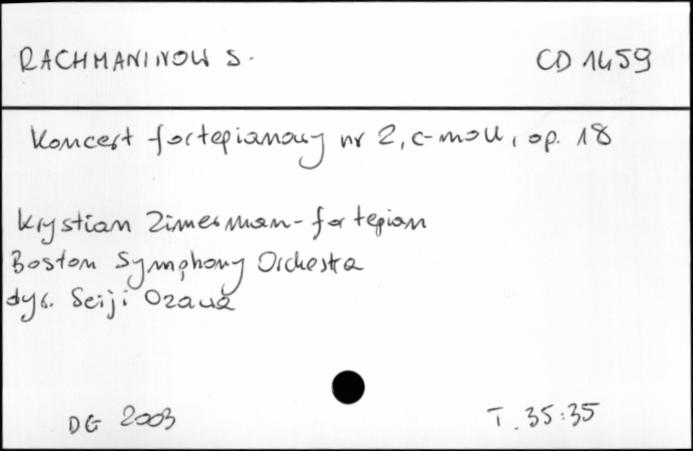 RACHMANINOW S.
CD 1459
Koncert fortepianowy nr 2, c-moll, op. 18
Krystian Zimerman - fortepian
Boston Symphony Orchestra
dyr. Seiji Ozawa
DG 2003
T. 35:35